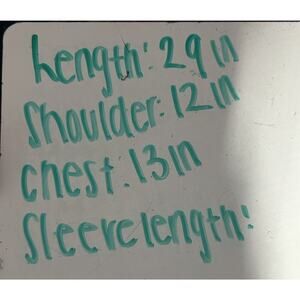 Length: 29in
Shoulder: 12in
Chest: 13in
Sleevelength: